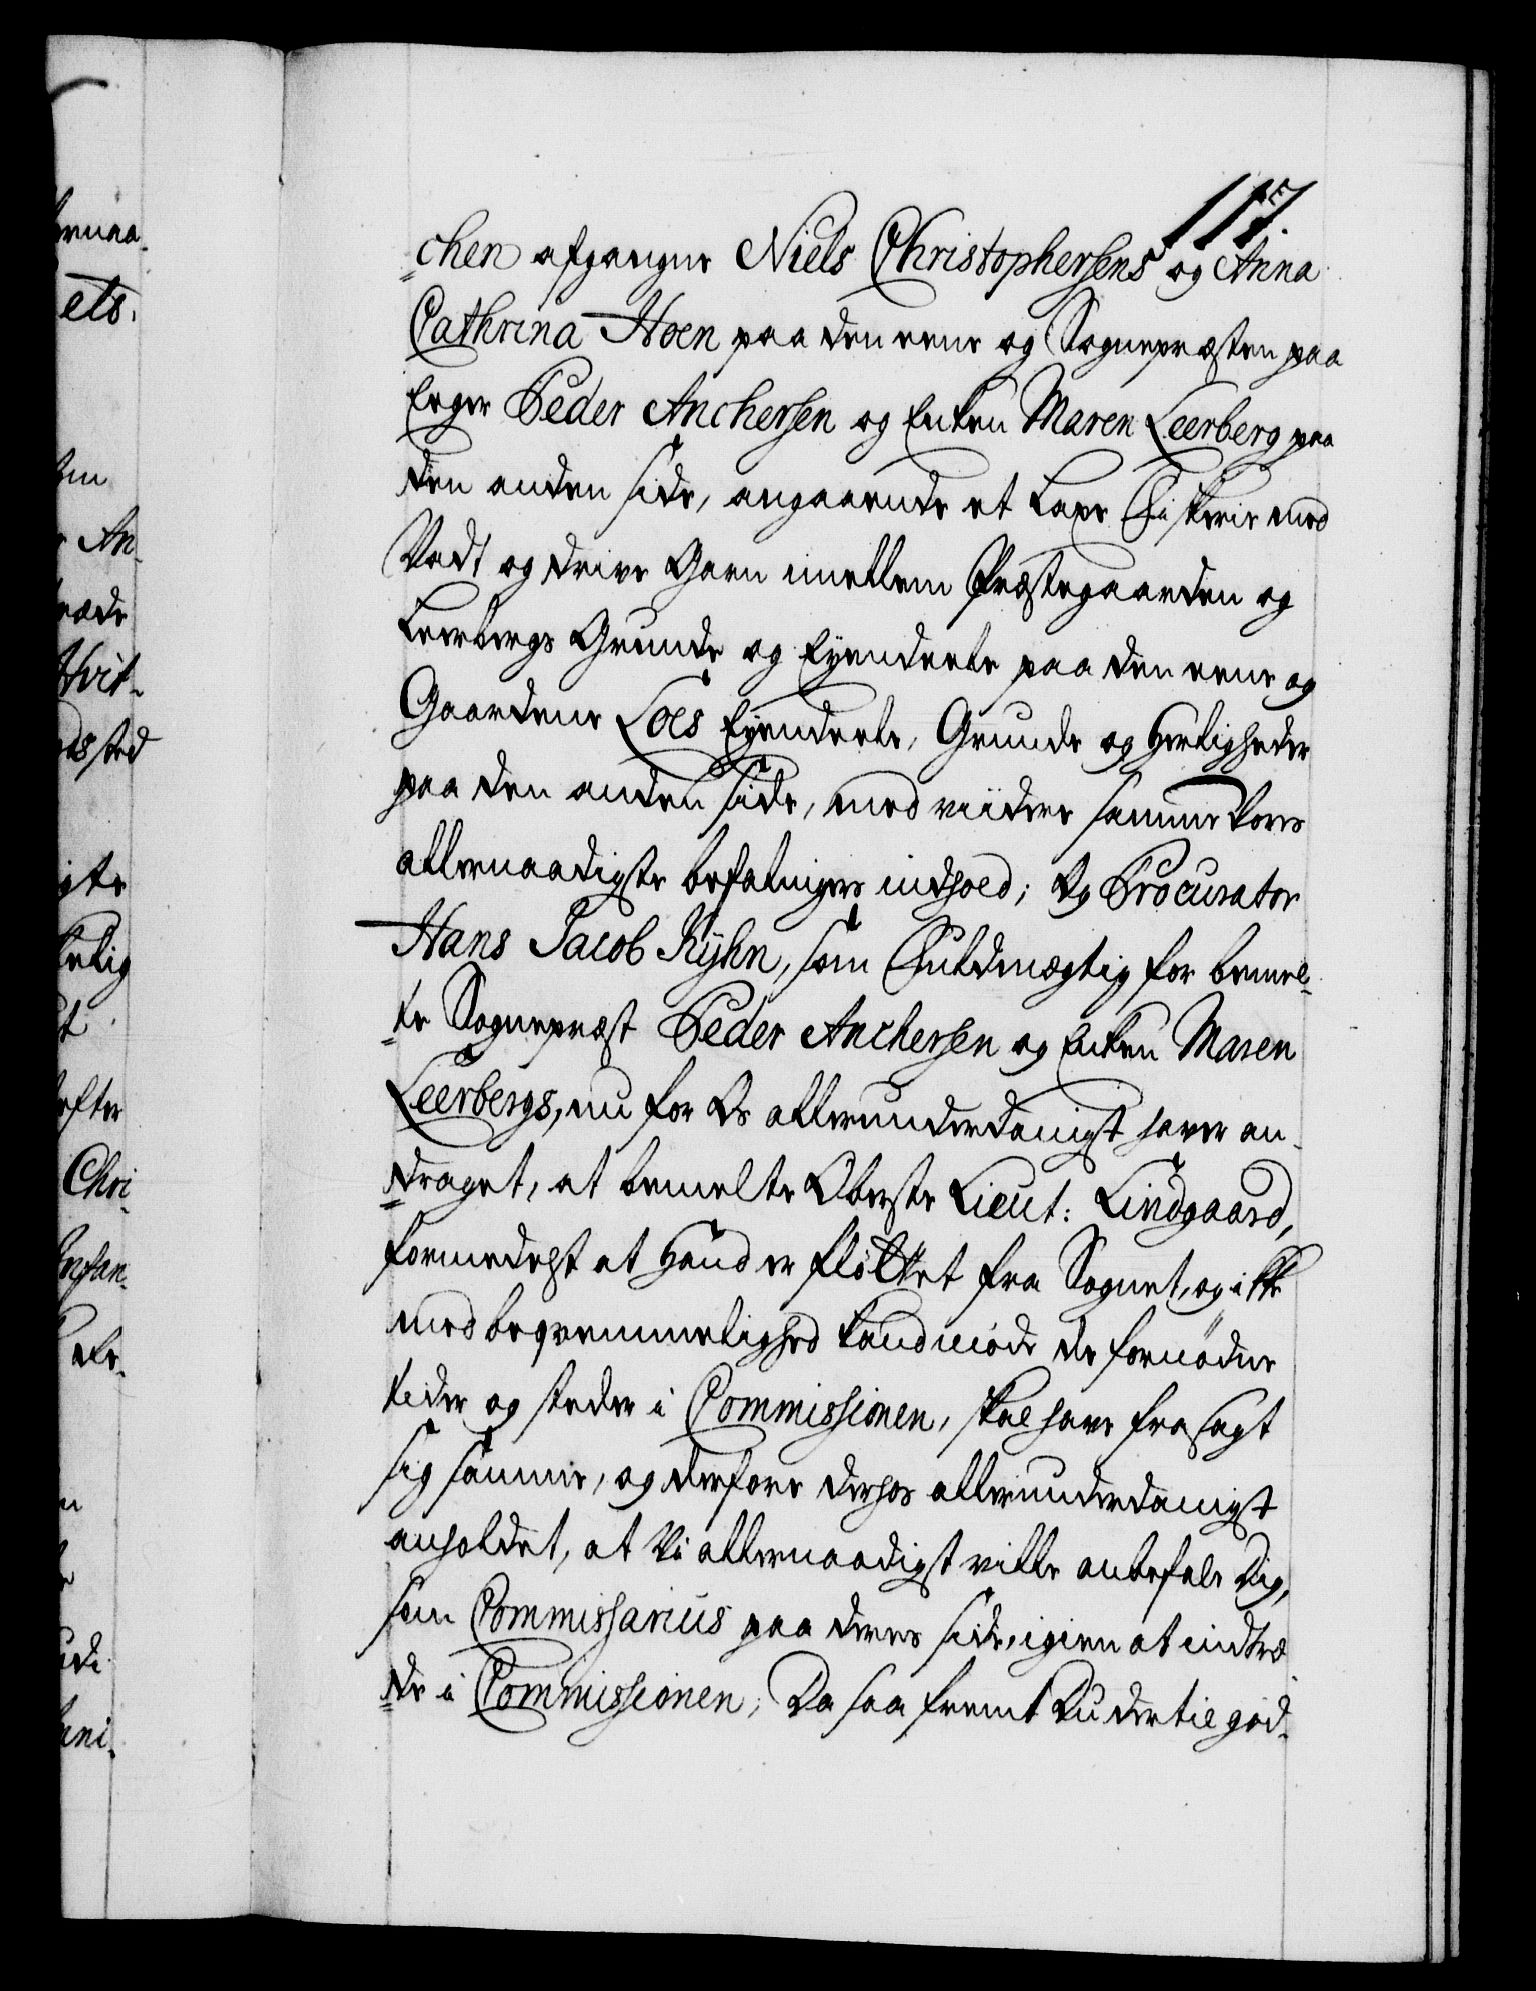 117.
chen afgangne Niels Christophersens og Anna
Cathrina Hoen paa den eene og Sognepræsten paa
Eger Peder Anchersen og Enken Maren Leerberg paa
den anden side, angaaende et Laxe Fiskerie med
Vadt og drive Garn imellem Præstegaarden og
Leerbergs Grunde og Eyendeele paa den eene og
Gaardene Loes Eyendeele, Grunde og Herligheder
paa den anden side, med viidere samme Vores
allernaadigste befalnigers indhold; Og Procurator
Hans Jacob Kyhn, som Fuldmægtig for bemel-
te Sognepræst Peder Anchersen og Enken Maren
Leerbergs, nu for Os allerunderdanigst haver an-
draget, at bemelte Oberste Lieut: Lindgaard,
formedelst at Hand er fløttet fra Sognet, og ikke
med beqvemmelighed kand møde de fornødne
tider og steder i Commissionen, skal have frasagt
sig samme, og derfore derhos allerunderdanigst
anholdet, at Vi allernaadigst ville anbefale Dig,
som Commissarius paa deres side, igien at indtræ
de i Commissionen; Da saa fremt Du dertil god-
ets.
An-
Hvit-
sted
efter
Chri-